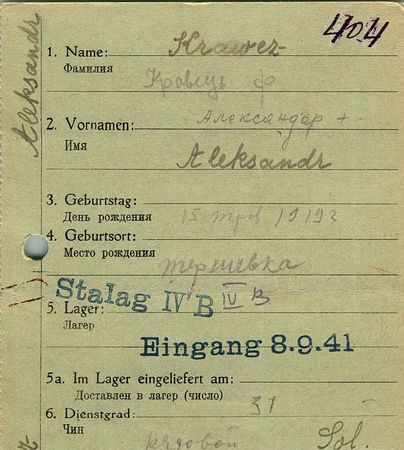 404
Aleksandr
1. Name: Krawez
Фамилия
Кравець
Александер +
2. Vornamen:
Имя Aleksandr
3. Geburtstag:
День рождения 15
4. Geburtsort:
Место рождения
Stalag IV B IV B
5. Lager:
Лагер
Eingang 8.9.41
5a. Im Lager eingeliefert am:
Доставлен в лагер (число)
6. Dienstgrad: 31
Чин рядовой Sol.